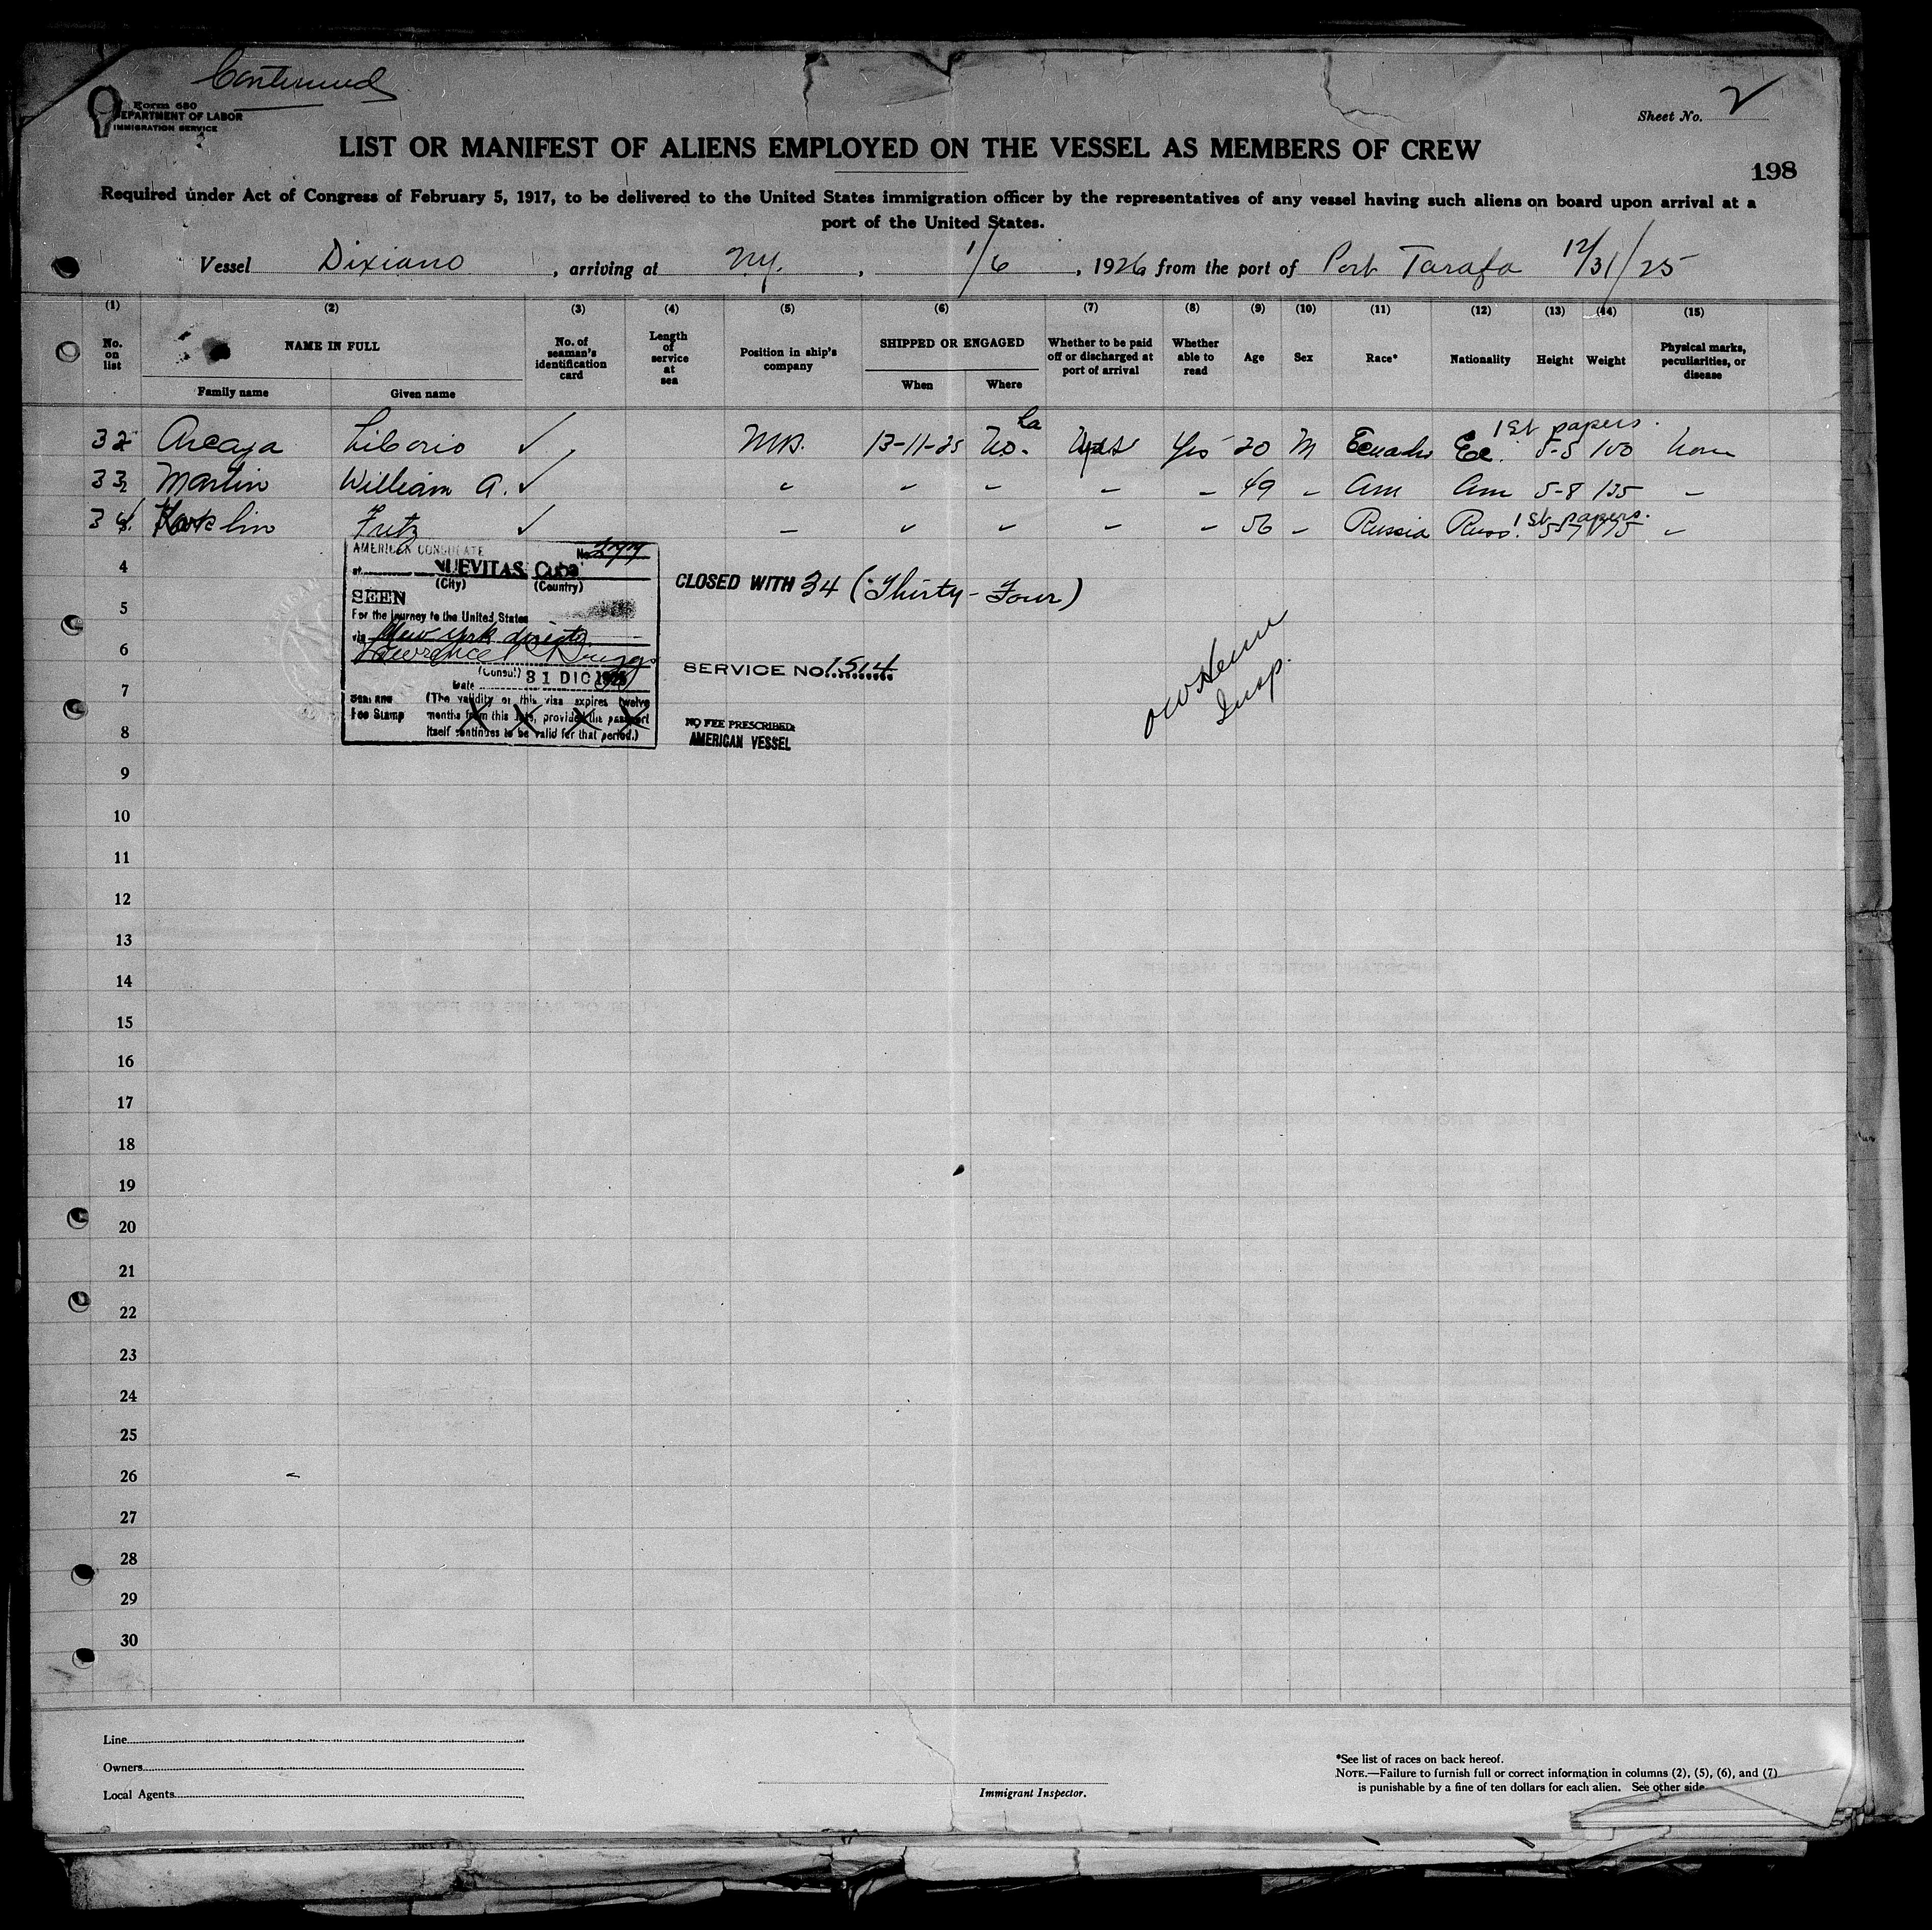 Continued
Form 680
DEPARTMENT OF LABOR
IMMIGRATION SERVICE
Sheet No. 2
LIST OR MANIFEST OF ALIENS EMPLOYED ON THE VESSEL AS MEMBERS OF CREW
198
Required under Act of Congress of February 5, 1917, to be delivered to the United States immigration officer by the representatives of any vessel having such aliens on board upon arrival at a
port of the United States.
Vessel Dixiano, arriving at NY., 1/6, 1926 from the port of Port Tarafa 12/31/25
(1) (2) (3) (4) (5) (6) (7) (8) (9) (10) (11) (12) (13) (14) (15)
No. on list
NAME IN FULL
Family name Given name
No. of seaman's identification card
Length of service at sea
Position in ship's company
SHIPPED OR ENGAGED
When Where
Whether to be paid off or discharged at port of arrival
Whether able to read
Age
Sex
Race*
Nationality
Height
Weight
Physical marks, peculiarities, or disease
1st papers.
32 Arcaya Liborio ✓ 13-11-25 Yes 20 M Ec. 5-5 100
33 Martin William A. ✓ " " " " " 49 " Am Am 5-8 135 "
1st papers.
34 Fritz ✓ " " " " " 56 " Russia Russ. 5-7 175 "
AMERICAN CONSULATE No. 277
at NUEVITAS, Cuba
(City) (Country)
SEEN
For the journey to the United States
via New York direct
(Consul)
Date 31 DIC 1925
Fee Stamp (The validity of this visa expires twelve
months from this date, provided the passport
itself continues to be valid for that period.)
CLOSED WITH 34 (Thirty-Four)
SERVICE NO. 1514
NO FEE PRESCRIBED.
AMERICAN VESSEL
Insp.
4
5
6
7
8
9
10
11
12
13
14
15
16
17
18
19
20
21
22
23
24
25
26
27
28
29
30
Line
Owners
Local Agents
Immigrant Inspector.
*See list of races on back hereof.
NOTE.—Failure to furnish full or correct information in columns (2), (5), (6), and (7)
is punishable by a fine of ten dollars for each alien. See other side.